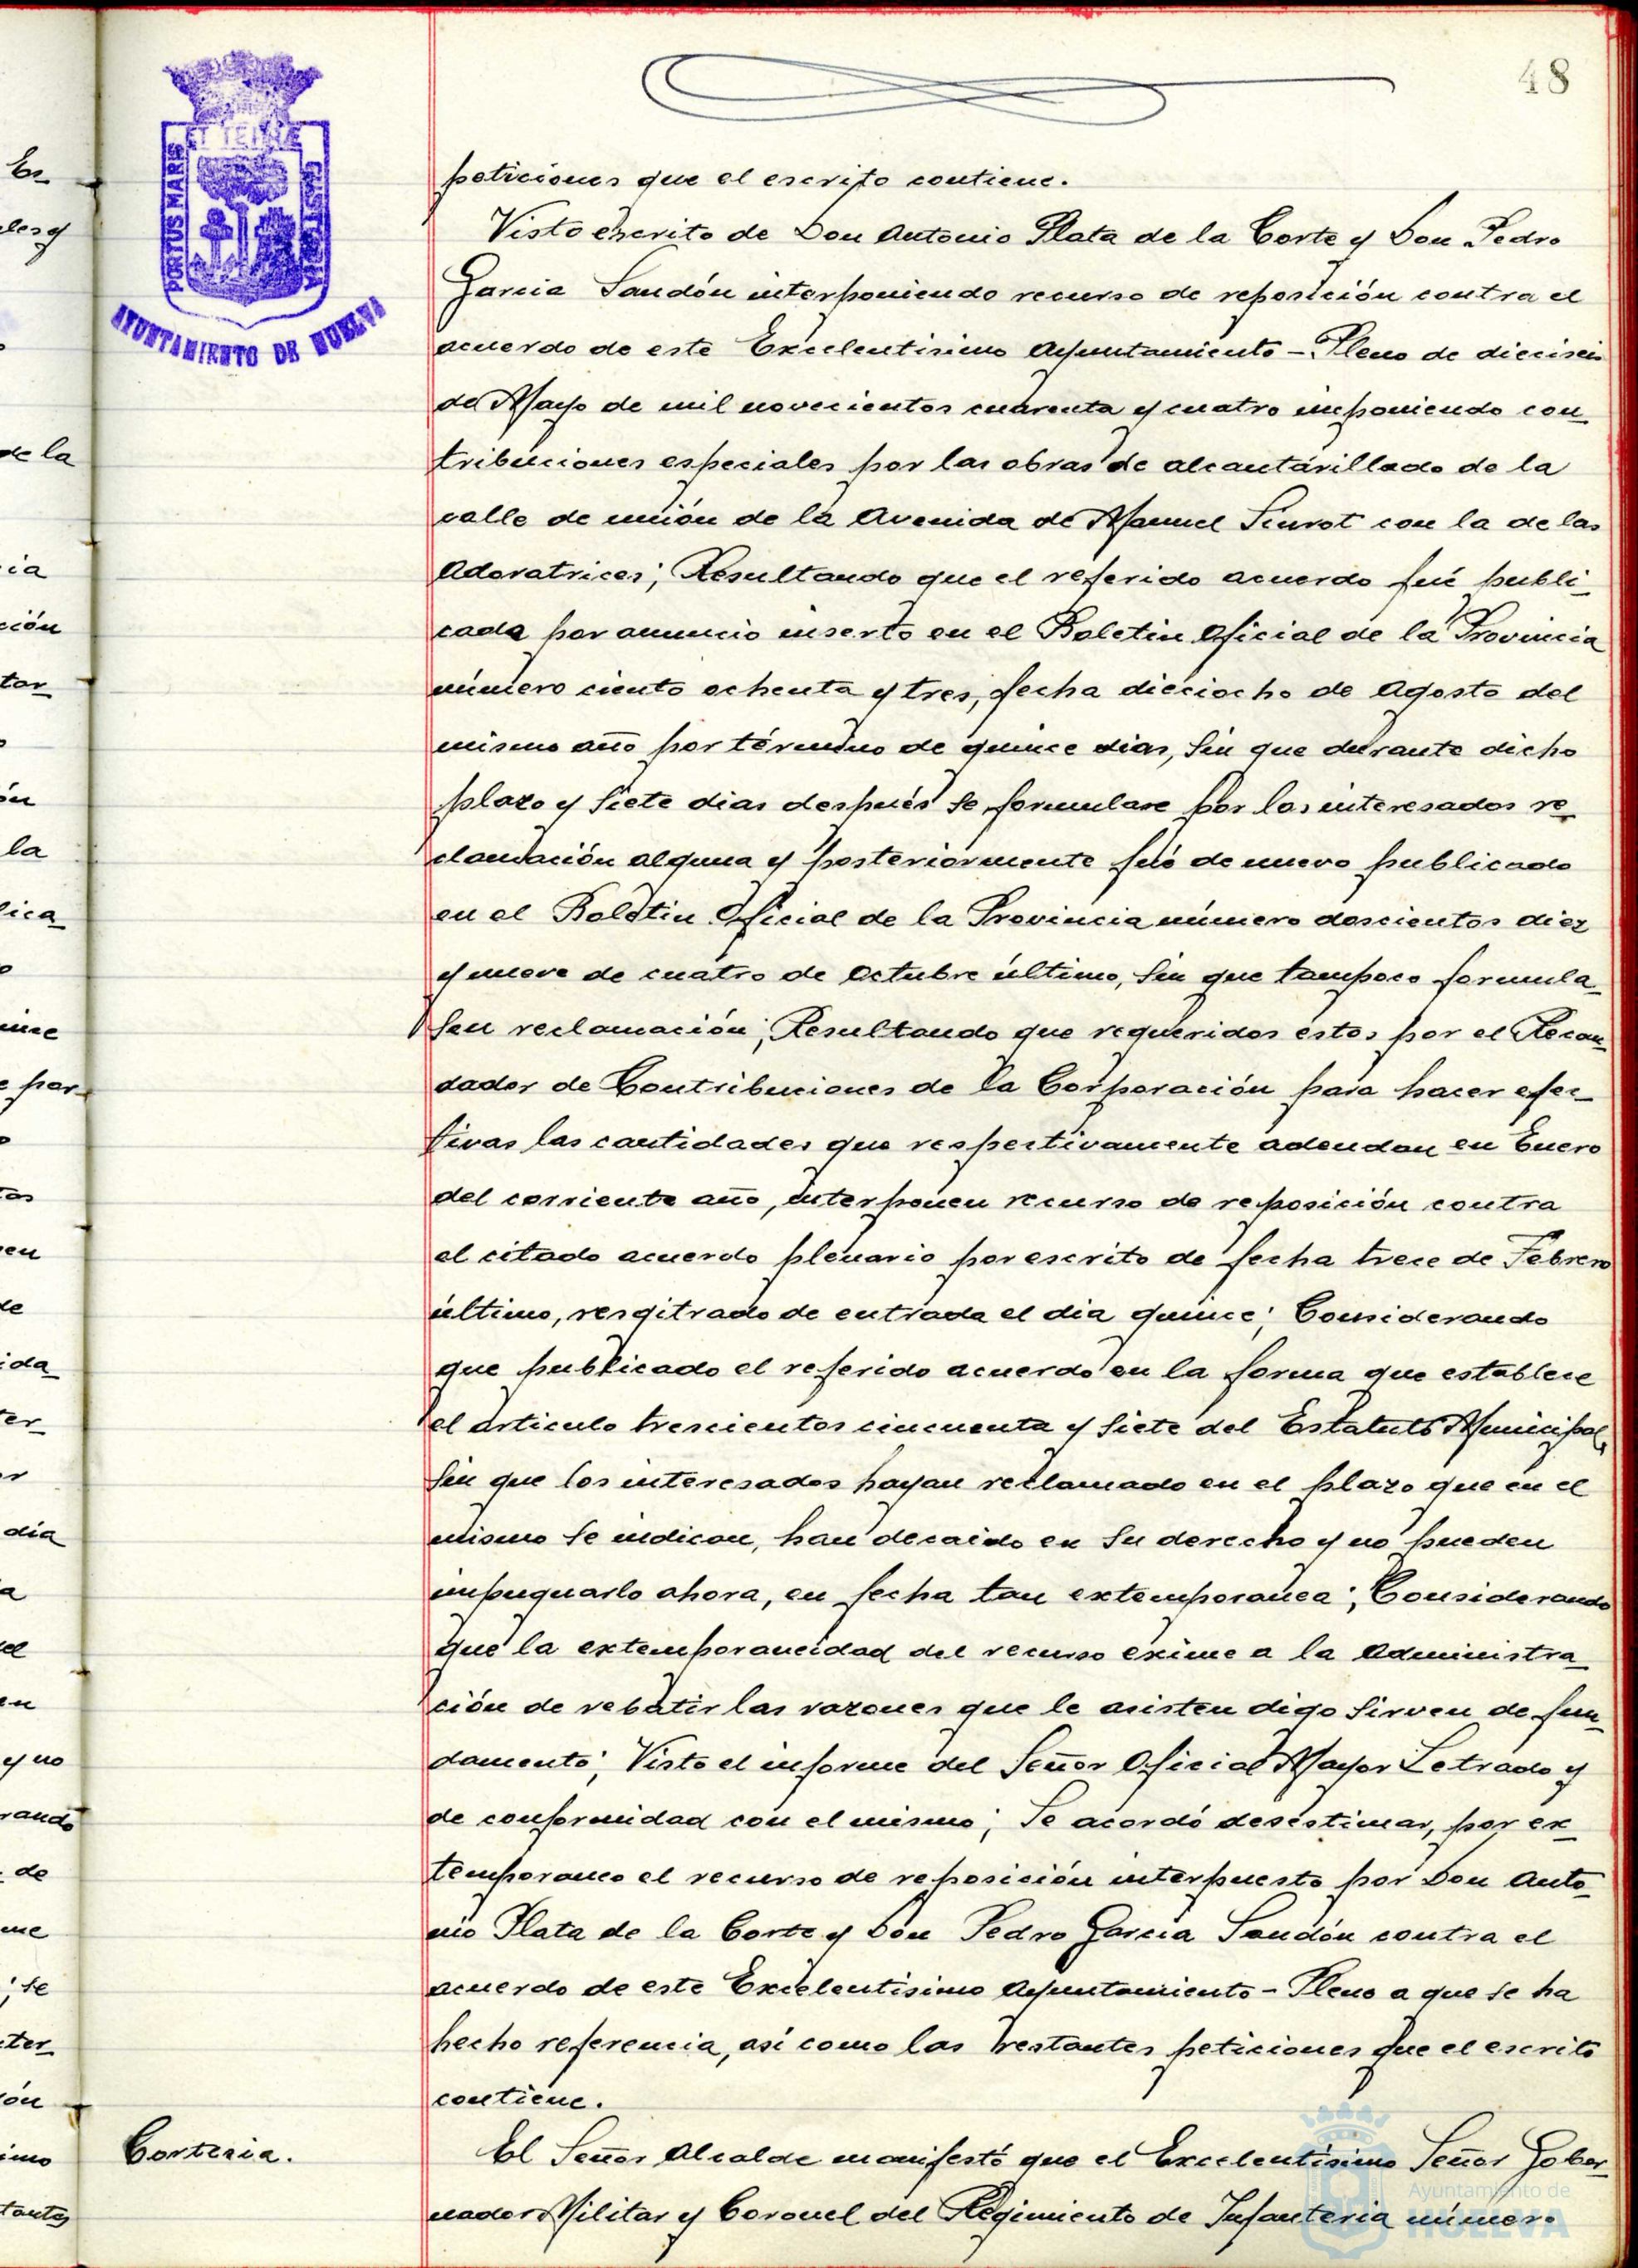 48
ET TERRE
PORTUS MARIS
CUSTODIA
AYUNTAMIENTO DE HUELVA
peticiones que el escrito contiene.
Visto escrito de Don Antonio Plata de la Corte y Don Pedro
Garcia Sandón interponiendo recurso de reposición contra el
acuerdo de este Excelentisimo Ayuntamiento - Pleno de dieciseis
de Mayo de mil novecientos cuarenta y cuatro imponiendo con_
tribuciones especiales por las obras de alcantarillado de la
calle de unión de la Avenida de Manuel Siurot con la de las
Adoratrices; Resultando que el referido acuerdo fué publi_
cada por anuncio inserto en el Boletin Oficial de la Provincia
número ciento ochenta y tres, fecha dieciocho de Agosto del
mismo año por término de quince dias, sin que durante dicho
plazo y siete dias después se formulase por los interesados re_
clamación alguna y posteriormente fué de nuevo publicado
en el Boletin Oficial de la Provincia número doscientos diez
y nueve de cuatro de Octubre último, sin que tampoco formula_
sen reclamación; Resultando que requeridos éstos por el Recau_
dador de Contribuciones de la Corporación para hacer efec_
tivas las cantidades que respectivamente adeudan en Enero
del corriente año, interponen recurso de reposición contra
el citado acuerdo plenario por escrito de fecha trece de Febrero
último, resgitrado de entrada el dia quince; Considerando
que publicado el referido acuerdo en la forma que establece
el articulo trescientos cincuenta y siete del Estatuto Municipal,
sin que los interesados hayan reclamado en el plazo que en el
mismo se indican, han decaido en su derecho y no pueden
impugnarlo ahora, en fecha tan extemporanea; Considerando
que la extemporaneidad del recurso exime a la Administra_
ción de rebatir las razones que le asisten digo sirven de fun_
damento; Visto el informe del Señor Oficial Mayor Letrado y
de conformidad con el mismo; Se acordó desestimar, por ex_
temporaneo el recurso de reposición interpuesto por Don Anto_
nio Plata de la Corte y Don Pedro Garcia Sandón contra el
acuerdo de este Excelentisimo Ayuntamiento - Pleno a que se ha
hecho referencia, asi como las restantes peticiones que el escrito
contiene.
Cortesia.
El Señor Alcalde manifestó que el Excelentisimo Señor Gober_
nador Militar y Coronel del Regimiento de Infanteria número
Ayuntamiento de
HUELVA